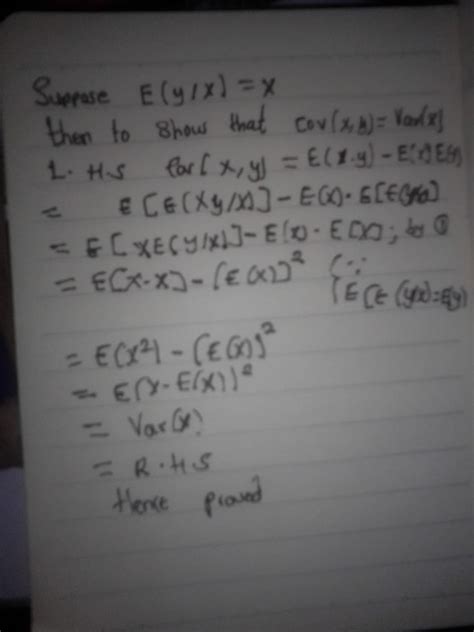 Suppose E(y/x) = x
then to show that Cov(x,y)=Var[x]
L.H.S Cov[x,y] = E(x.y) - E(x)E(y)
= E[E(Xy/x)] - E(x).E[E(y/x)]
= E[XE(y/x)] - E(x).E[X]; by ①
= E[X.X] - [E(x)]² (∵
[E[E(y/x)=E(y)
= E(x²) - [E(x)]²
= E(x - E(x))²
= Var(x)
= R.H.S
Hence proved